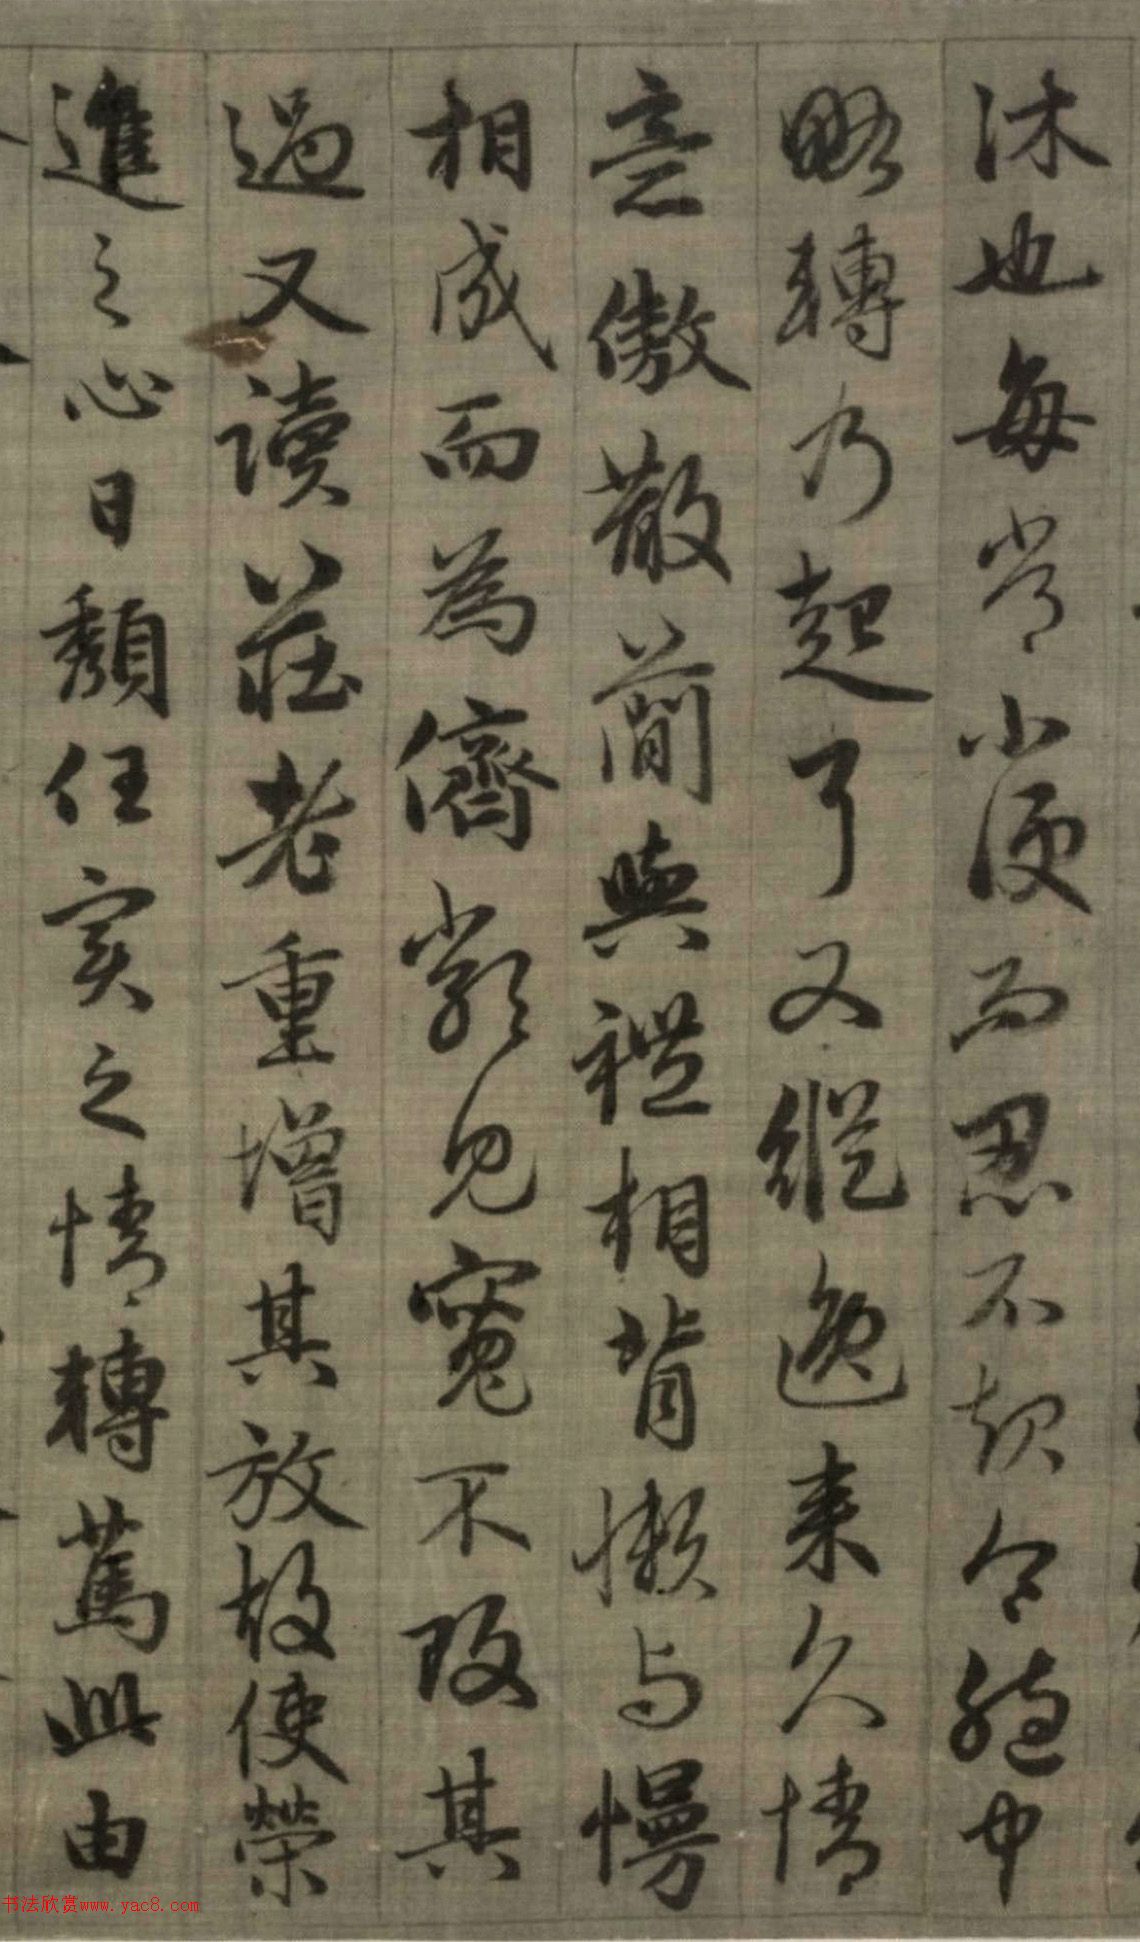 沐也每常小便而忍不起令胞中
略轉乃起耳又縱逸来久情
意傲散簡與禮相背懶与慢
相成而為儕類見寬不攻其
過又讀莊老重增其放故使榮
進之心日頹任實之情轉篤此由
书法欣赏www.yac8.com